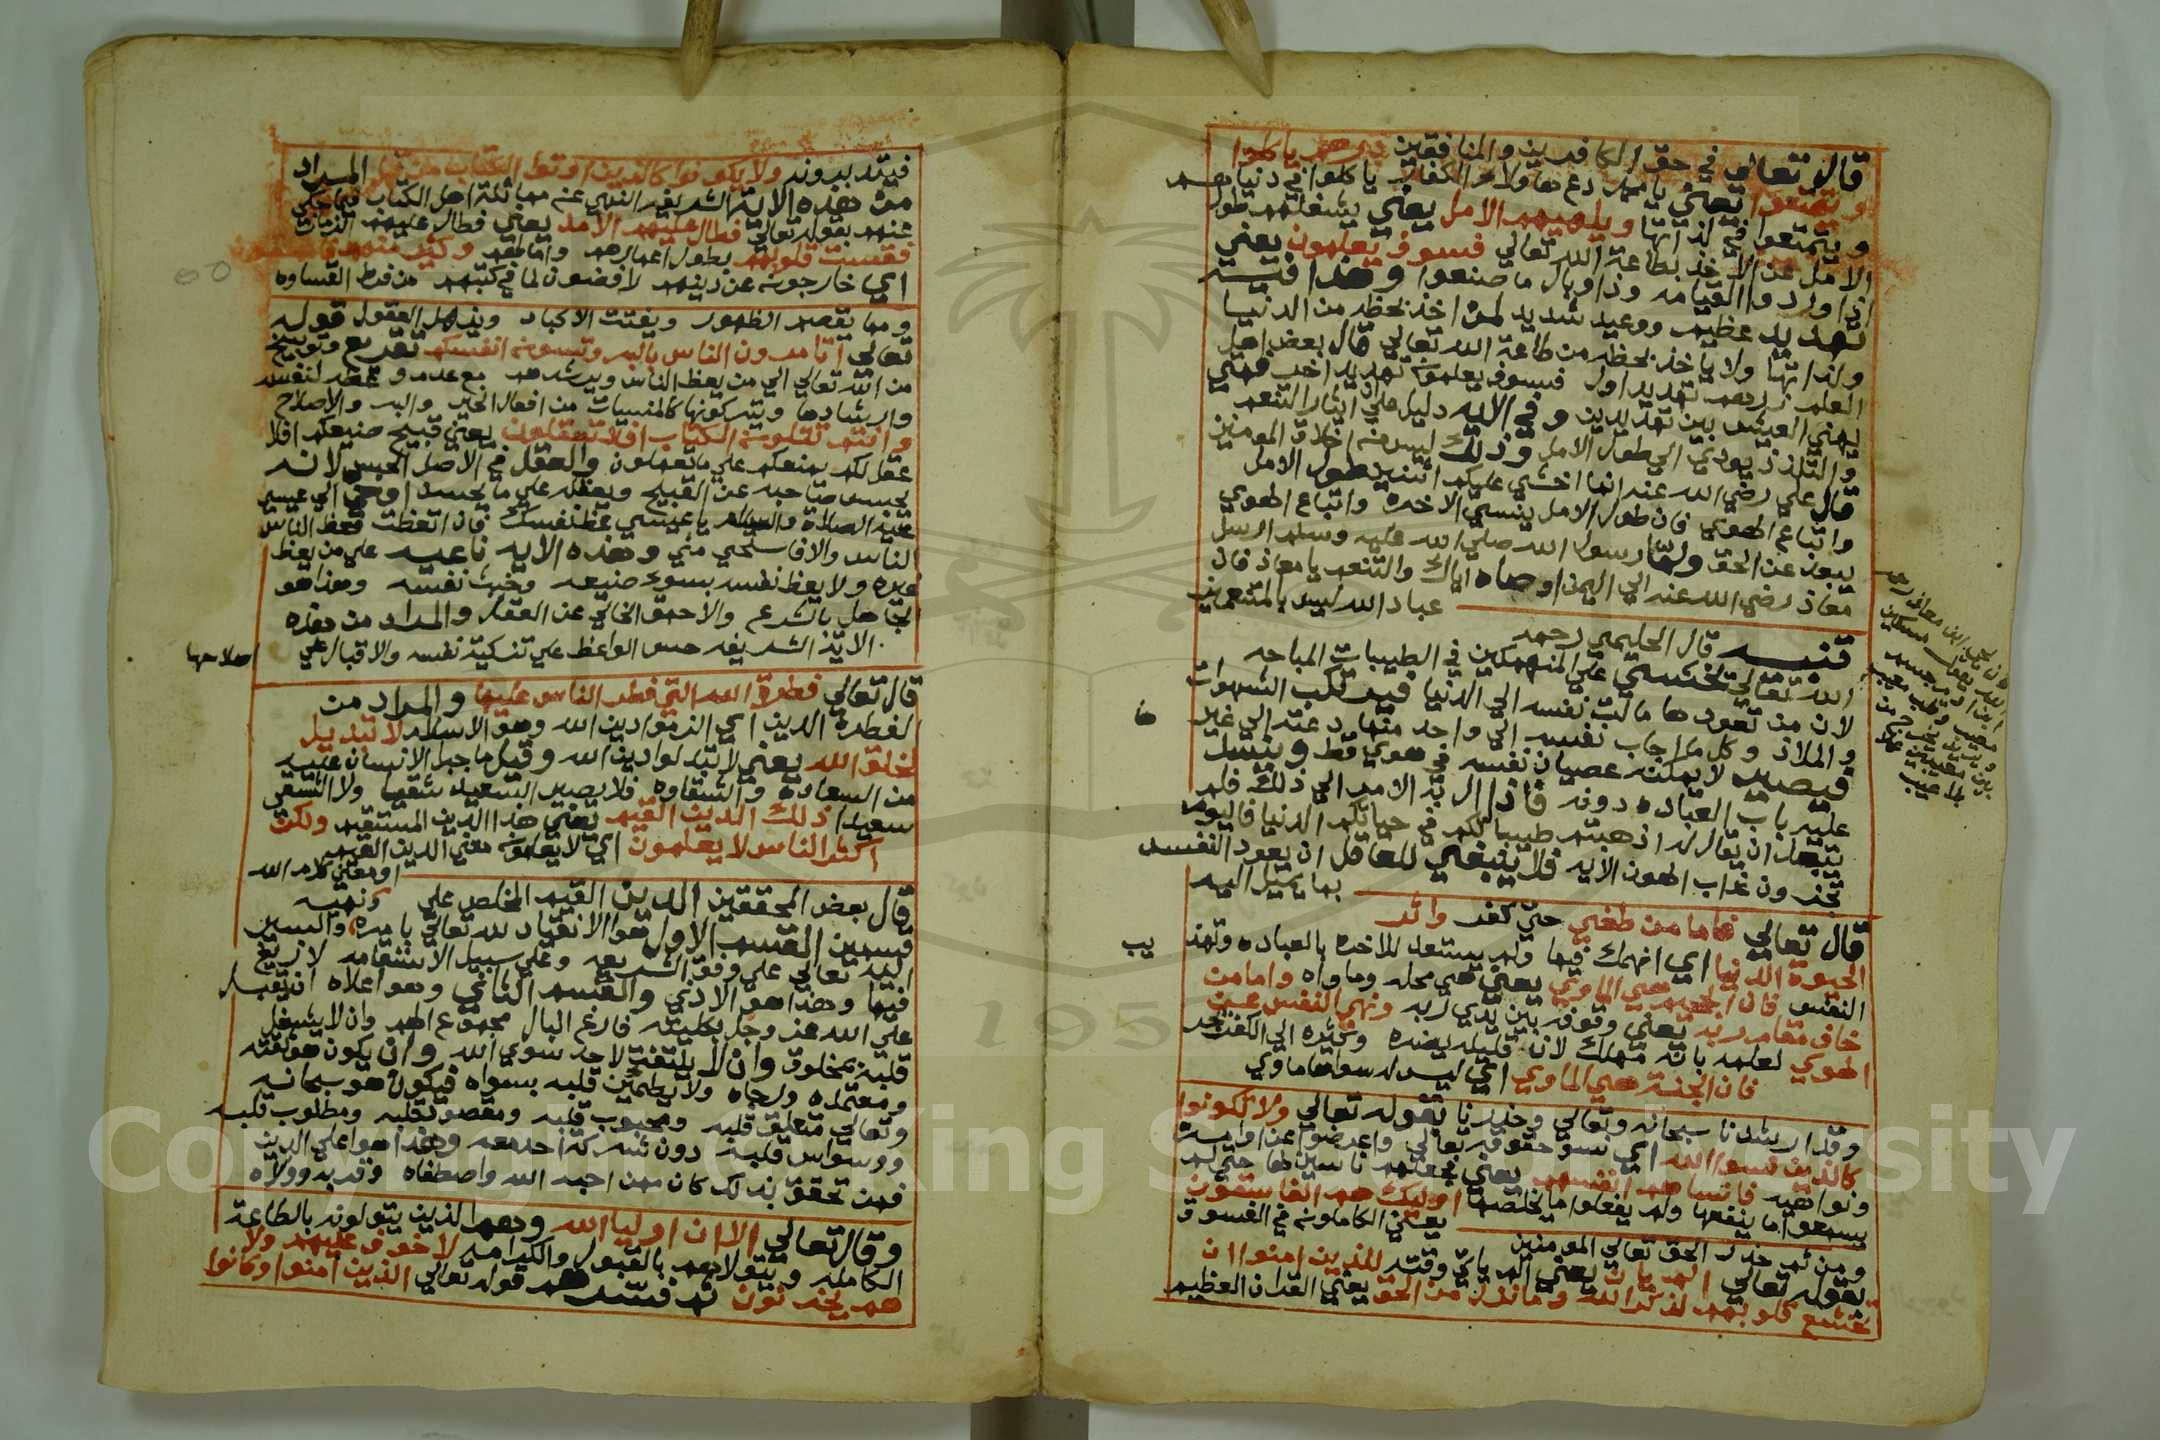 قال تعالى في حق الكافرين والمنافقين ذرهم ياكلوا
ويتمتعوا يعني يا محمد دع هاولاء الكفار ياكلوا في دنياهم
ويتمتعوا في لذاتها ويلهيهم الامل يعني يشغلهم طول
الامل عن الاخذ بطاعة الله تعالى فسوف يعلمون يعني
اذا وردوا القيامه وذاقوا وبال ما صنعوا وهذا فيه
تهديد عظيم ووعيد شديد لمن اخذ بحظه من الدنيا
ولذاتها ولا ياخذ بحظه من طاعة الله تعالى قال بعض اهل
العلم ذرهم تهديد اول فسوف يعلمون تهديد اخر فمتى
يهني العيش بين تهديدين وفي الايه دليل على ان ايثار التنعم
والتلذذ يودي الى طول الامل وذلك ليس من اخلاق المومنين
قال علي رضي الله عنه انما اخشى عليكم اثنتين طول الامل
واتباع الهوى فان طول الامل ينسي الاخره واتباع الهوى
يبعد عن الحق ولما رسول الله صلى الله عليه وسلم ارسل
معاذ رضي الله عنه الى اليمن اوصاه اياك والتنعم يا معاذ فان
عباد الله ليس بالمتنعمين
تنبيه قال الحليمي رحمه
الله تعالى يخشى على المنهمكين في الطيبات المباحه
لان من تعودها مالت نفسه الى الدنيا فيرتكب الشهوات
والملاذ وكلما اجاب نفسه الى واحد منها دعته الى غير
ها
فيصير لا يمكنه عصيان نفسه في هوى قط وينسد
عليه باب العباده دونه فاذا ال به الامر الى ذلك فلم
يبعد ان يقال له اذهبتم طيباتكم في حياتكم الدنيا فاليوم
تجزون عذاب الهون الايه فلا ينبغي للعاقل ان يعود النفس
بما يميل اليه
قال تعالى فاما من طغى حتى كفر واثر
الحيوة الدنيا اي انهمك فيها ولم يستعد للاخره بالعباده وتهذ
يب
النفس فان الجحيم هي الماوى يعني هي محله وماواه واما من
خاف مقام ربه يعني وقوفه بين يدي ربه ونهى النفس عن
الهوى لعلمه بانه مهلك لان قليله يضره وكثيره الى الكفر يجر
فان الجنة هي الماوى اي ليس له سواها ماوي
وقد ارشدنا سبحانه وتعالى وحذرنا بقوله تعالى ولا تكونوا
كالذين نسوا الله اي نسوا حقوقه تعالى واعرضوا عن اوامره
ونواهيه فانساهم انفسهم يعني فجعلهم ناسين لها حتى لم
يسمعوا ما ينفعها ولم يفعلوا ما يخلصها اوليك هم الفاسقون
يعني الكاملون في الفسوق
ومن ثم حذر الحق تعالى المومنين
بقوله تعالى الم يان يعني الم يات وقته للذين امنوا ان
تخشع قلوبهم لذكر الله وما نزل من الحق يعني القران العظيم
فيتدبرونه ولا يكونوا كالذين اوتوا الكتاب من قبل المراد
من هذه الاية الشريفه النهي عنه مماثلة اهل الكتاب فيما حكى
عنهم بقوله تعالى فطال عليهم الامد يعني فطال عليهم الزمان
فقست قلوبهم بطول اعمارهم وكثير منهم فاسقون
اي خارجون عن دينهم رافضون لما في كتبهم من فرط القساوه
ومما يقصم الظهور ويفتت الاكباد ويذهل العقول قوله
تعالى اتامرون الناس بالبر وتنسون انفسكم تقريع وتوبيخ
من الله تعالى الى من يعظ الناس ويرشدهم مع عدم وعظه لنفسه
وارشادها ويتركونها كالمنسيات من افعال الخير والبر والاصلاح
وانتم تتلون الكتاب افلا تعقلون يعني قبيح صنيعكم افلا
عقل لكم يمنعكم على ما تعملون والعقل في الاصل الحبس لانه
يحبس صاحبه عن القبيح ويعقله على ما يحسن اوحى الى عيسى
عليه الصلاة والسلام يا عيسى عظ نفسك فان اتعظت فعظ الناس
الناس والا فاستحي مني وهذه الايه ناعيه على من يعظ
غيره ولا يعظ نفسه بسوء صنيعه وخبث نفسه وهذا هو
الجاهل بالشرع والاحمق الخالي عن العقل والمراد من هذه
الاية الشريفه حث الواعظ على تزكية نفسه والاقبال على
اصلاحها
قال تعالى فطرة الله التي فطر الناس عليها والمراد من
الفطرة الدين اي الزموا دين الله وهو الاسلام لا تبديل
لخلق الله يعني لا تبدلوا دين الله وقيل ما جبل الانسان عليه
من السعادة والشقاوه فلا يصير السعيد شقيا ولا الشقي
سعيدا ذلك الدين القيم يعني هذا الدين المستقيم ولكن
اكثر الناس لا يعلمون اي لا يعلمون معنى الدين القيم
او معنى كلام الله
قال بعض المحققين الدين القيم المخلص على
قسمين القسم الاول هو الانقياد لله تعالى بامره ونهيه والسير
اليه تعالى على وفق الشريعه وعلى سبيل الاستقامه لا زيغ
فيها وهذا هو الادنى والقسم الثاني وهو اعلاه ان يقبل
على الله عز وجل بكليته فارغ البال مجموع الهم وان لا يشغل
قلبه بمخلوق وان لا يلتفت لاحد سوى الله وان يكون هو ثقته
ومعتمده ورجاه ولا يطمين قلبه بسواه فيكون هو سبحانه
وتعالى متعلق قلبه ومحبوب قلبه ومقصود قلبه ومطلوب قلبه
ووسواس قلبه دون شركة احد معه وهذا هو اعلى الدين
فمن تحقق بذلك كان ممن احبه الله واصطفاه وقربه وولاه
وقال تعالى الا ان اوليا الله وهم الذين يتولونه بالطاعة
الكامله ويتولاهم بالقبول والكرامه لا خوف عليهم ولا
هم يحزنون ثم فسرهم قوله تعالى الذين امنوا وكانوا
1957
Copyright © King Saud University